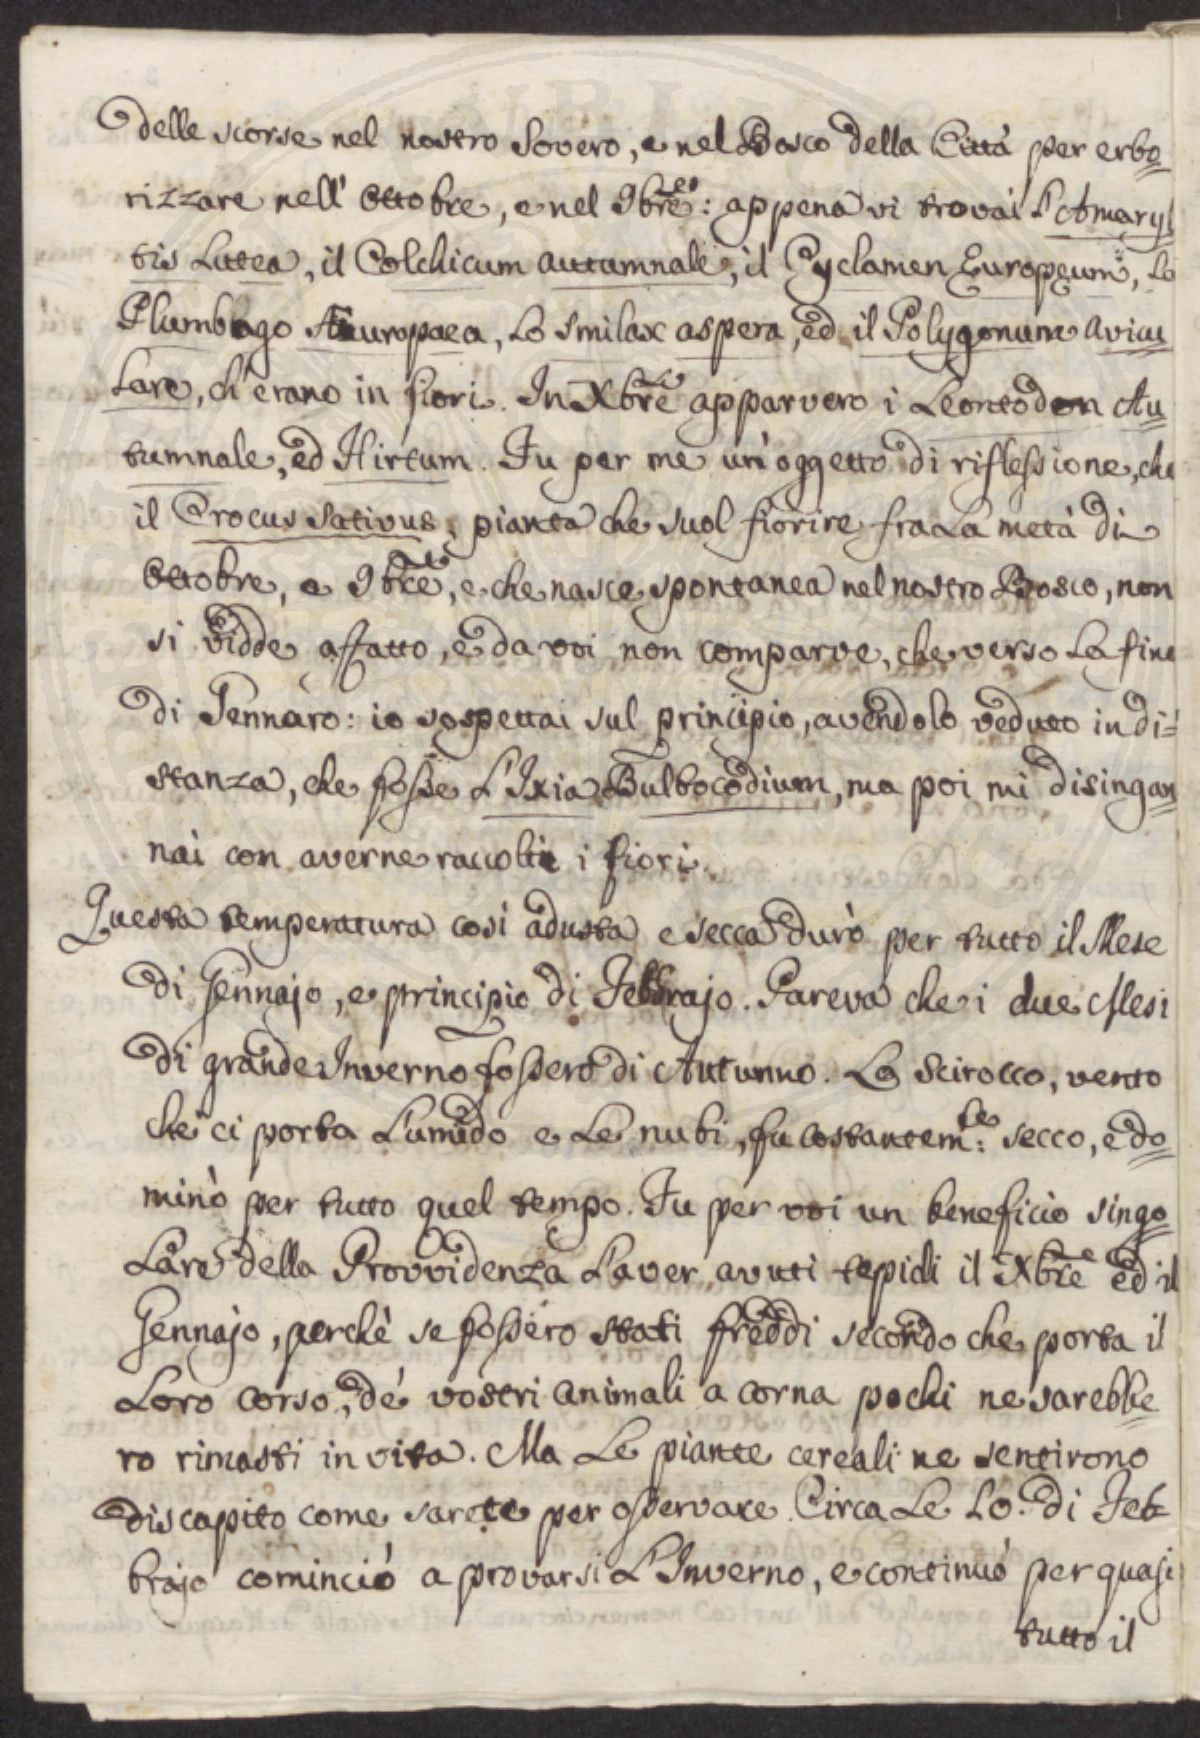 delle scorse nel nostro Sovero, e nel Bosco della Città per erbo=
rizzare nell' Ottobre, e nel 9bre: appena vi trovai L'Amaryl
tis Lutea, il Colchicum autumnale, il Cyclamen Europeum, Lo
Plumbago Europaea, Lo Smilax aspera, ed il Polygonum avicu
Lare, ch'erano in fiori. In Xbre apparvero i Leontodon Au
tumnale, ed Hirtum. Fu per me un'oggetto di riflessione, che
il Crocus Sativus, pianta che suol fiorire fra La metà di
Ottobre, e 9bre, e che nasce spontanea nel nostro Bosco, non
si vidde affatto, e da voi non comparve, che verso La fine
di Gennaro: io sospettai sul principio, avendolo veduto in di=
stanza, che fosse L'Ixia Bulbocodium, ma poi mi disingan
nai con averne raccolti i fiori.
Questa temperatura così adusta e secca durò per tutto il Mese
di Gennajo, e principio di Febbrajo. Pareva che i due Mesi
di grande Inverno fossero di Autunno. Lo Scirocco, vento
che ci porta L'umido e Le nubi, fu costantem:te secco, e do=
minò per tutto quel tempo. Fu per voi un beneficio singo=
Lare della Provvidenza L'aver avuti tepidi il Xbre ed il
Gennajo, perchè se fossero stati freddi secondo che porta il
Loro corso, de' vostri animali a corna pochi ne sarebbe=
ro rimasti in vita. Ma Le piante cereali ne sentirono
discapito come sarete per osservare. Circa Le Lo. di Feb=
brajo cominciò a provarsi L'Inverno, e continuò per quasi
tutto il